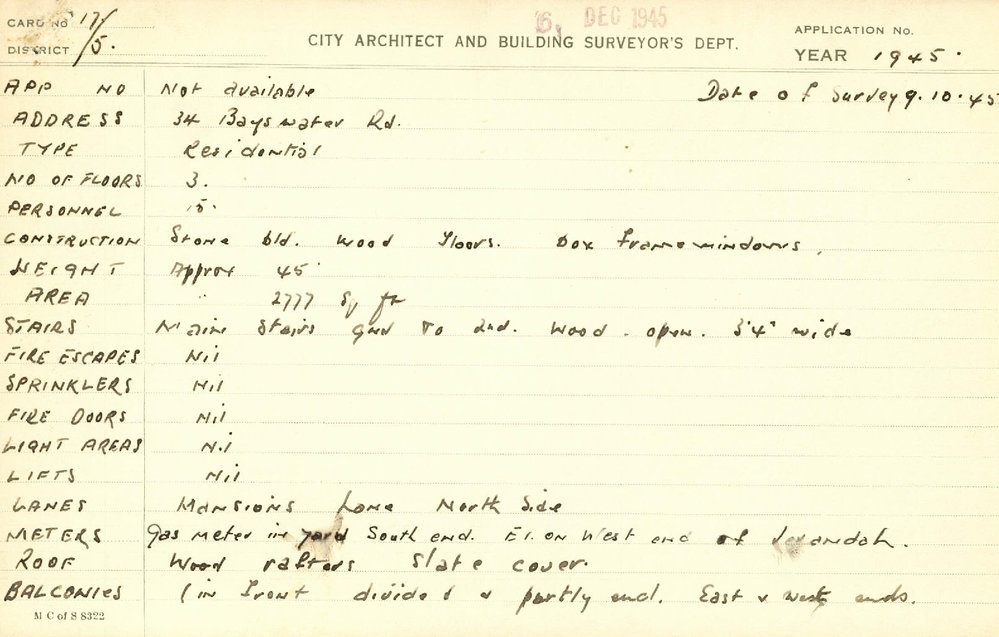 CARD No 17/5.
6, DEC 1945
DISTRICT
CITY ARCHITECT AND BUILDING SURVEYOR'S DEPT.
APPLICATION No.
YEAR 1945.
APP NO Not available Date of Survey 9.10.45
ADDRESS 34 Bayswater Rd.
TYPE Residential
NO OF FLOORS 3.
PERSONNEL 15.
CONSTRUCTION Stone bld. Wood floors. Box frame windows.
HEIGHT Approx 45'
AREA " 2777 Sq ft
STAIRS Main Stairs gnd to 2nd. Wood - open. 3'4" wide
FIRE ESCAPES Nil
SPRINKLERS Nil
FIRE DOORS Nil
LIGHT AREAS Nil
LIFTS Nil
LANES Mansions Lane North Side
METERS Gas meter in yard South end. El. on West end of Verandah.
ROOF Wood rafters Slate cover.
BALCONIES 1 in front divided & partly encl. East & West ends.
M C of S 8322